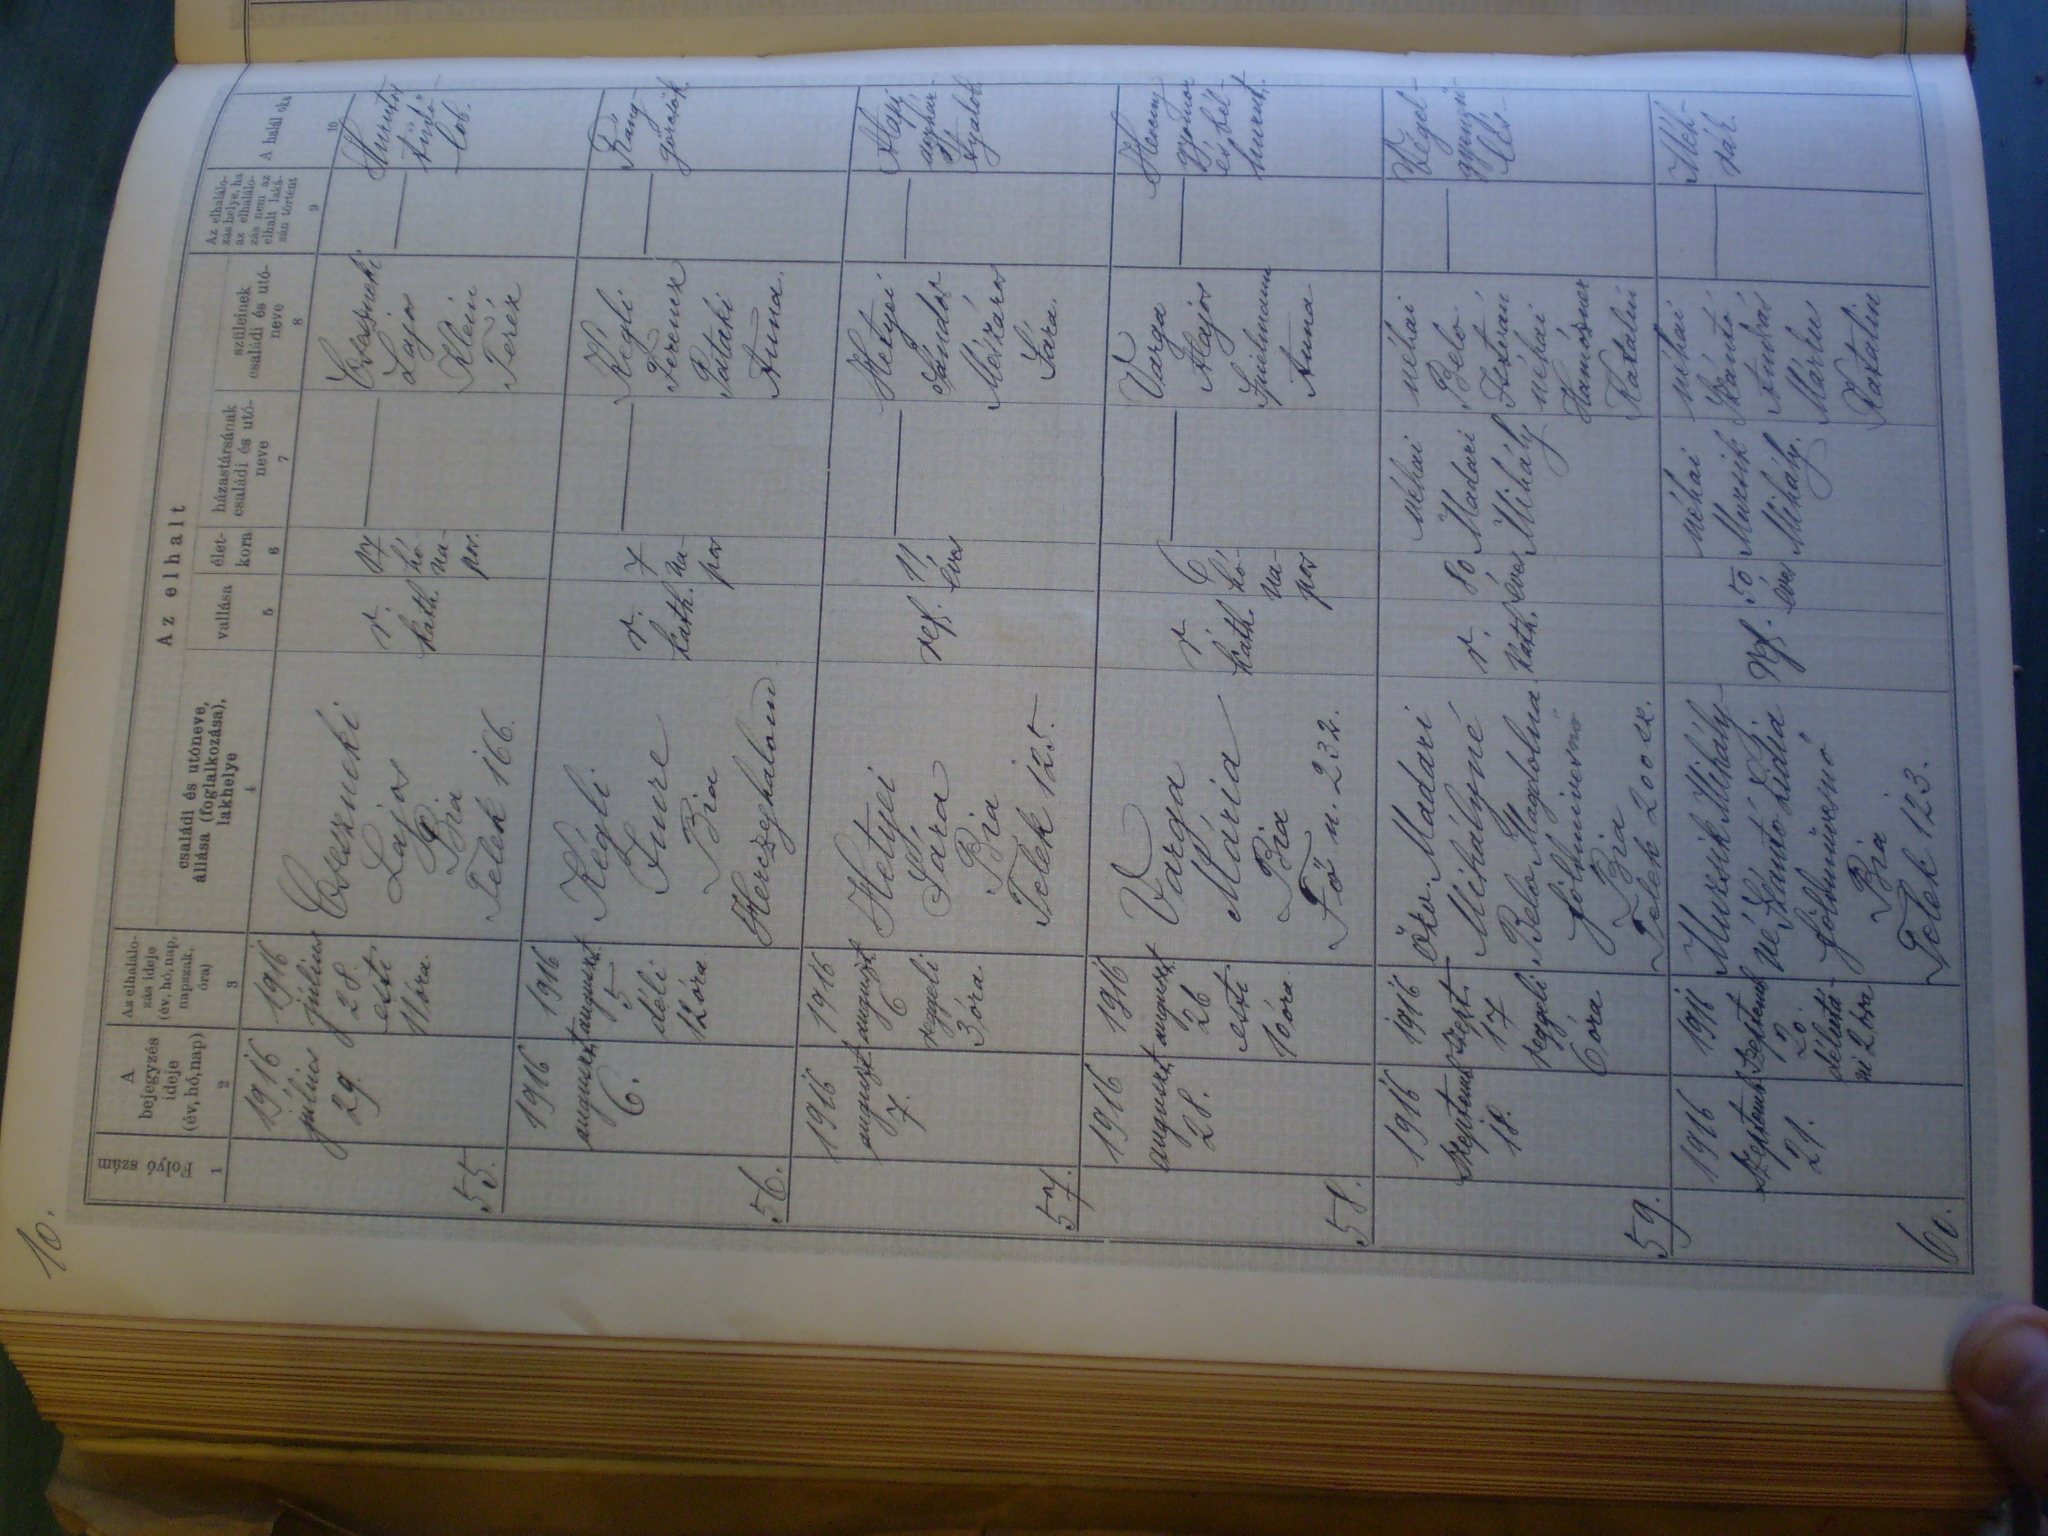 10.
Az elhalt
Folyó szám
A bejegyzés ideje (év, hó, nap)
Az elhalálozás ideje (év, hó, nap, napszak, óra)
családi és utóneve, állása (foglalkozása), lakhelye
vallása
életkora
házastársának családi és utóneve
szüleinek családi és utóneve
Az elhalálozás helye, ha az elhalálozás nem az elhalt lakásán történt
A halál oka
1
2
3
4
5
6
7
8
9
10
55.
1916
július
29.
1916
július
28.
esti
11 óra
Lajos
Bia
Telek 166.
r.
kath.
17
hó-
na-
pos.
Lajos
Klein
Teréz
Hurutos
tüdő-
lob.
56.
1916
auguszt.
6.
1916
auguszt.
5
déli
12 óra
Kégli
Imre
Bia
Herczeghalom
r.
kath.
7
na-
pos
Kégli
Ferencz
Pataki
Anna.
Ráng-
görcsök.
57.
1916
auguszt
7.
1916
auguszt
6
reggeli
3 óra
Hetyei
Sára
Bia
Telek 125.
ref.
11
éves
Hetyei
Sándor
Mészáros
Sára.
58.
1916
auguszt.
28.
1916
auguszt
26
esti
10 óra
Varga
Mária
Bia
Fő u. 232.
r.
kath.
6
hó-
na-
pos
Varga
Alajos
Spielmann
Anna
Heveny
gyomor
és bél-
hurut.
59.
1916
Szeptemb
18.
1916
Szept.
17
reggeli
6 óra
özv. Madari
Mihályné
Belo Magdolna
földmívesnő
Bia
Telek 200 sz.
r.
kath.
80
éves
néhai
Madari
Mihály
néhai
Belo
István
néhai
Hamósner
Katalin
Végel-
gyengü-
lés.
60.
1916
Szeptemb
21.
1916
Szeptemb
20.
délutá-
ni 2 óra
Muzsik Mihály-
né Szántó Lidia
földmívesnő
Bia
Telek 123.
ref.
50
éves
néhai
Muzsik
Mihály.
néhai
Szántó
András
Márkus
Katalin
Méh-
rák.